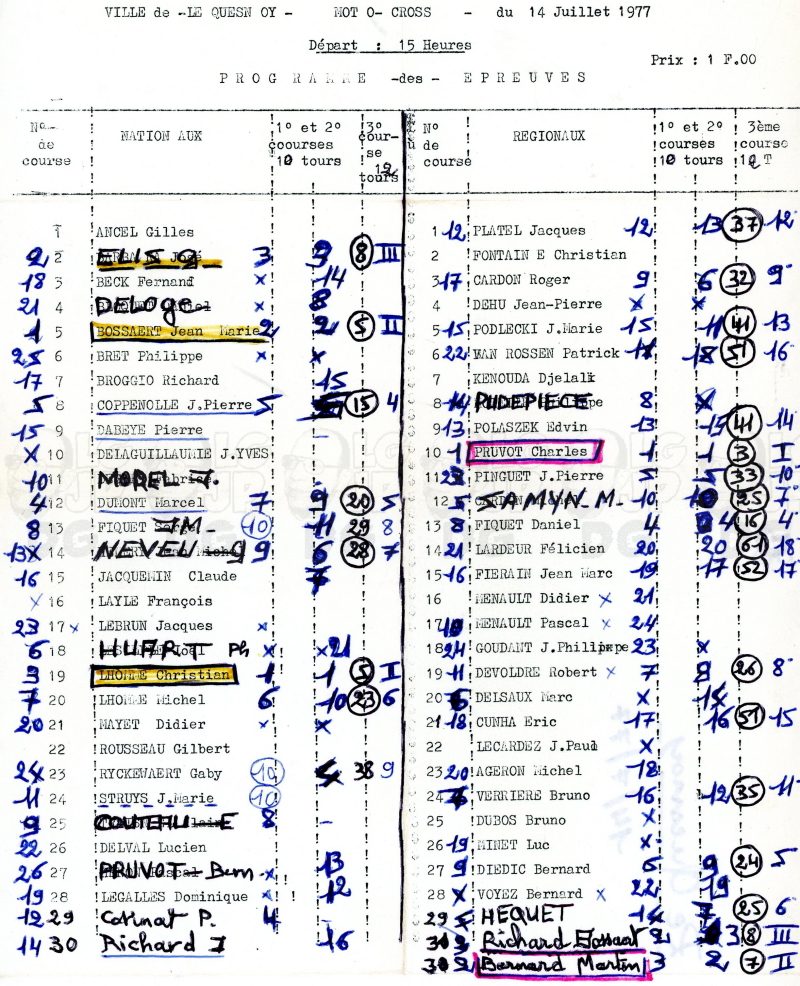 VILLE de -LE QUESN OY - MOT O- CROSS - du 14 Juillet 1977
Départ : 15 Heures
Prix : 1 F.00
P R O G R A M M E -des- E P R E U V E S
N° de course NATION AUX 1° et 2° courses 10 tours 3° cour-se 12 tours N° de course REGIONAUX 1° et 2° courses 10 tours 3ème course 12 T
1 ANCEL Gilles
2 2 ELIS 3 8 III
18 3 BECK Fernand x 14
21 4 DELOGE 8
1 5 BOSSAERT Jean Marie 2 2 5 II
25 6 BRET Philippe x x
17 7 BROGGIO Richard 15
5 8 COPPENOLLE J.Pierre 5 15 4
15 9 DABEYE Pierre -
X 10 DELAGUILLAUMIE J.YVES
10 11 MOREL J.
4 12 DUMONT Marcel 7 9 20 5
8 13 FIQUET JM- 10 11 29 8
13 14 NEVEU g 9 6 28 7
16 15 JACQUEMIN Claude 7
x 16 LAYLE François
23 17 x LEBRUN Jacques x
6 18 HUART Ph x x21
3 19 LHOMME Christian 1 1 5 I
7 20 LHOMME Michel 6 10 23 6
20 21 MAYET Didier x x
22 ROUSSEAU Gilbert
24 23 RYCKEWAERT Gaby 10 4 38 9
11 24 STRUYS J.Marie 10
9 25 COUTEAU E 8 -
22 26 DELVAL Lucien
26 27 PRUVOT - Bern x 13
19 28 LEGALLES Dominique x 12
12 29 Cotinat P. 4
14 30 Richard J 16
1 12 PLATEL Jacques 12 13 37 12
2 FONTAIN E Christian
3 17 CARDON Roger 9 6 32 9
4 DEHU Jean-Pierre x x
5 15 PODLECKI J.Marie 15 11 41 13
6 22 VAN ROSSEN Patrick 18 51 16
7 KENOUDA Djelali
8 14 PUDEPIECE 8 x
9 13 POLASZEK Edvin 13 15 41 14
10 1 PRUVOT Charles 1 1 3 I
11 PINGUET J.Pierre 5 5 33 10
12 5 SAMYN_M- 10 10 25 7
13 8 FIQUET Daniel 4 4 16 4
14 21 LARDEUR Félicien 20 20 61 18
15 16 FIERAIN Jean Marc 19 17 52 17
16 MENAULT Didier x 21
17 10 MENAULT Pascal x 24
18 24 GOUDANT J.Philippe 23 x
19 11 DEVOLDRE Robert x 7 9 26 8
20 6 DELSAUX Marc x 14
21 18 CUNHA Eric 17 16 51 15
22 LECARDEZ J.Paul x
23 20 AGERON Michel 18
24 VERRIERE Bruno 16 12 35 11
25 DUBOS Bruno x
26 19 MINET Luc x
27 9 DIEDIC Bernard 6 9 24 5
28 x VOYEZ Bernard x 22 19
29 HEQUET 14 7 25 6
Richard Bossaert 2 3 8 III
Bernard Martin 3 2 7 II